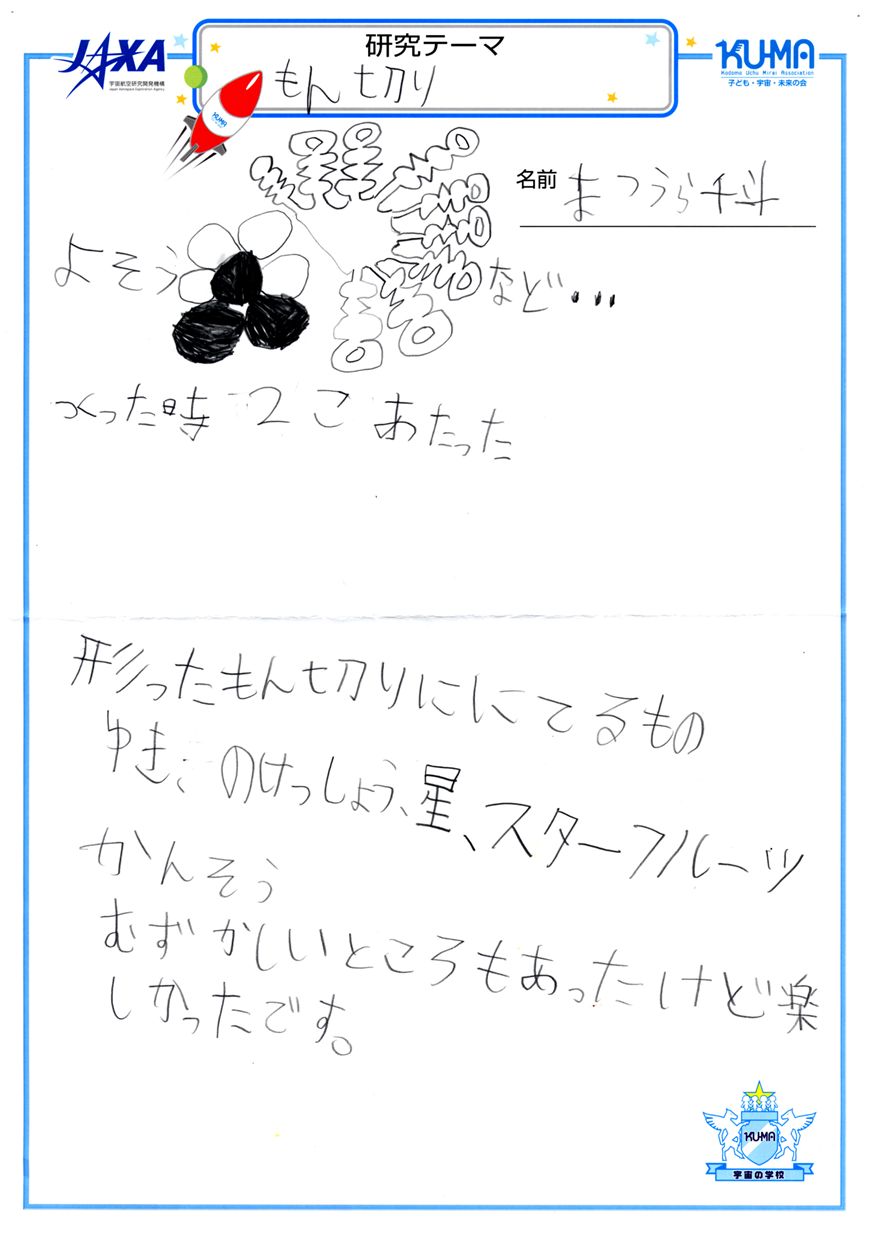 JAXA
宇宙航空研究開発機構
Japan Aerospace Exploration Agency
研究テーマ
もん切り
KUMA
KUMA
Kodomo Uchu Mirai Association
子ども・宇宙・未来の会
名前 まつうら千斗
よそう
など…
つくった時 2こ あたった
形ったもん切りににてるもの
ゆき のけっしょう、星、スターフルーツ
かんそう
むずかしいところもあったけど楽
しかったです。
KU-MA
宇宙の学校